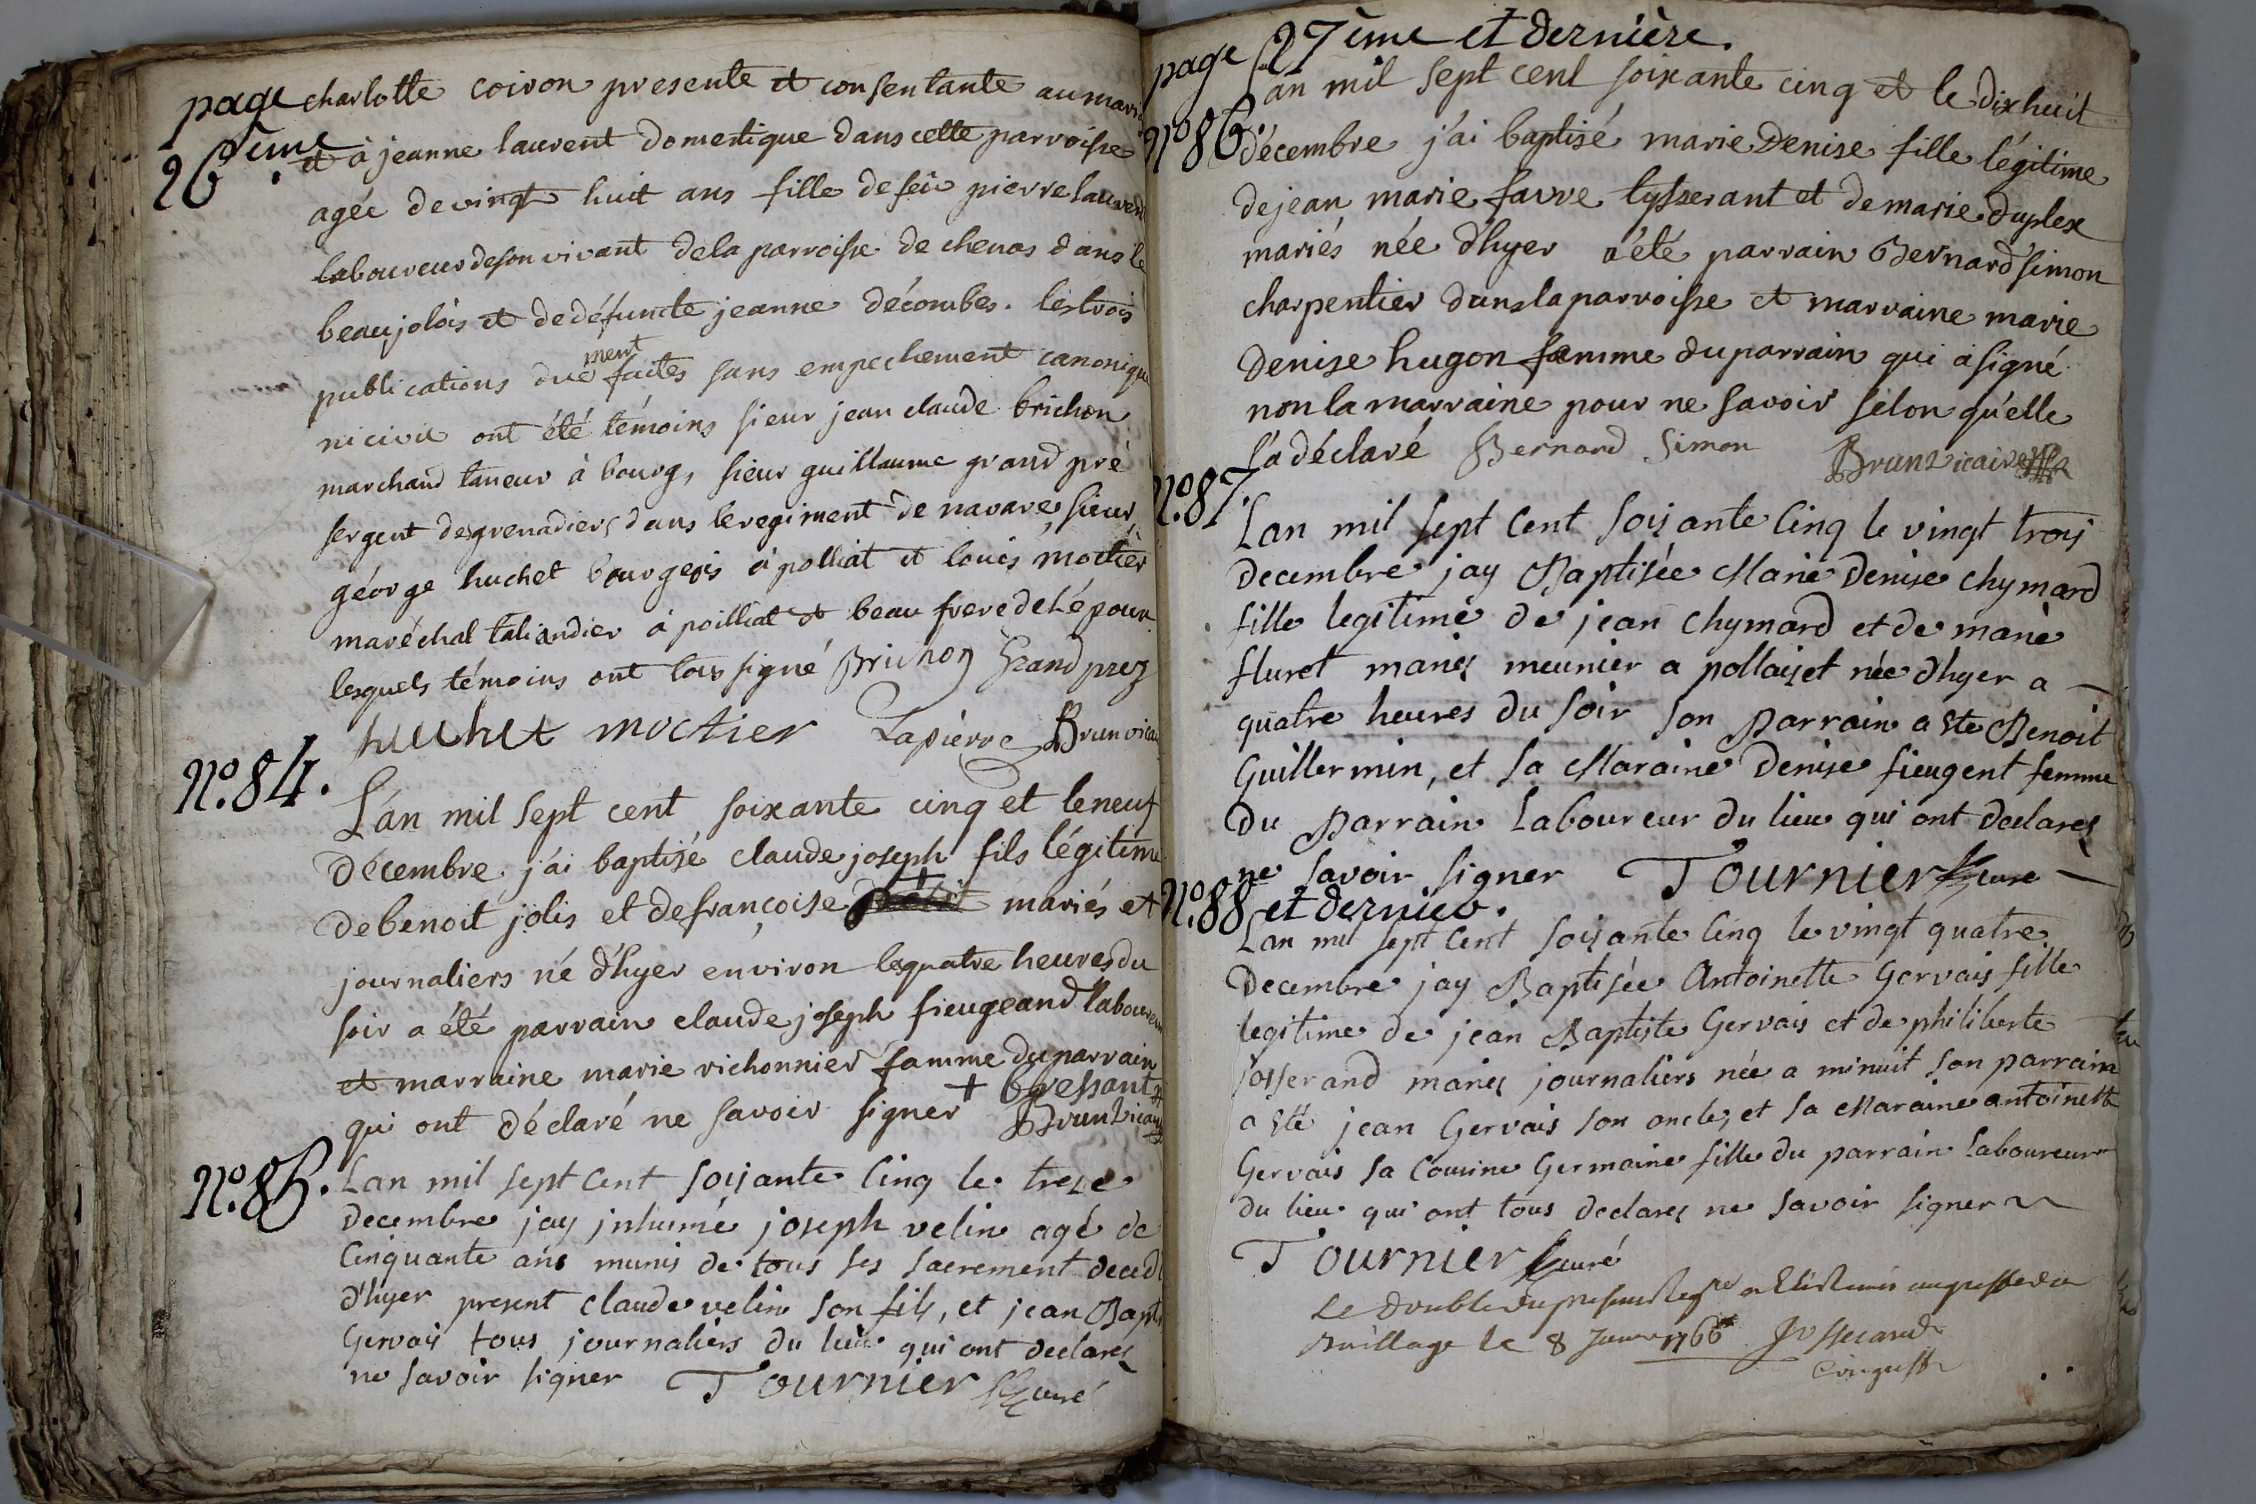 page
26ème.
charlotte coiron presente et consentante au mari
et à jeanne laurent domestique dans cette parroisse
agée de vingt huit ans fille de feu pierre laurent
laboureur de son vivant de la parroisse de chenas dans le
beaujolois et de défuncte jeanne décombes. les trois
publications duement faites sans empechement canonique
ni civil ont été témoins sieur jean claude brichon
marchand taneur à bourg, sieur guillaume grand pré
sergent des grenadiers dans le regiment de navare, sieur
géorge huchet bourgeois à polliat et louis moctier
maréchal taliandier à poilliat et beau frere de l'épour
lesquels témoins ont tous signé Brichon Grandprez
huchet moctier Lapierre Brun vicai
No.84.
L'an mil sept cent soixante cinq et le neuf
décembre j'ai baptisé claude joseph fils légitime
de benoit jolis et de françoise + mariés et
journaliers né d'hyer environ les quatre heures du
soir a été parrain claude joseph fieugeand laboureur
et marraine marie vichonnier famme du parrain
qui ont déclaré ne savoir signer + bressant
Brun vicaire
No.85.
Lan mil sept Cent soixante Cinq le treze
decembre jay jnhumé joseph velin agé de
Cinquante ans munis de tous ses sacrement decedé
d'hyer present claude velin son fils, et jean Bapt
Gervais tous journaliers du lieu qui ont declarez
ne savoir signer Tournier Curé
page 27ème et dernière.
No.86.
L'an mil sept cent soixante cinq et le dix huit
décembre j'ai baptisé marie Denise fille légitime
de jean marie favre tysserant et de marie duplex
mariés née d'hyer a été parrain Bernard simon
charpentier dans la parroisse et marraine marie
Denise hugon femme du parrain qui a signé
non la marraine pour ne savoir selon qu'elle
l'a déclaré Bernard Simon Brun vicaire
No.87.
Lan mil sept Cent soixante Cinq le vingt trois
decembre jay Baptisée Marie Denise Chymard
fille legitime de jean Chymard et de marie
fluret mariez meunier a pollaizet née d'hyer a
quatre heures du soir son Parrain a Ete Benoit
Guillermin, et sa Maraine Denise fieugent femme
du Parrain Laboureur du lieu qui ont declarez
ne savoir signer Tournier Curé
No.88 et dernier.
Lan mil sept Cent soixante Cinq le vingt quatre
Decembre jay Baptisée Antoinette Gervais fille
legitime de jean Baptiste Gervais et de philiberte
josserand mariez journaliers née a minuit son parrain
a Eté jean Gervais son oncle, et sa Maraine antoinette
Gervais sa Cousine Germaine fille du parrain Laboureur
du lieu qui ont tous declarez ne savoir signer
Tournier Curé
Le double du present a Eté Remis au greffe du
Bailliage le 8 Janvier 1766 Josserand